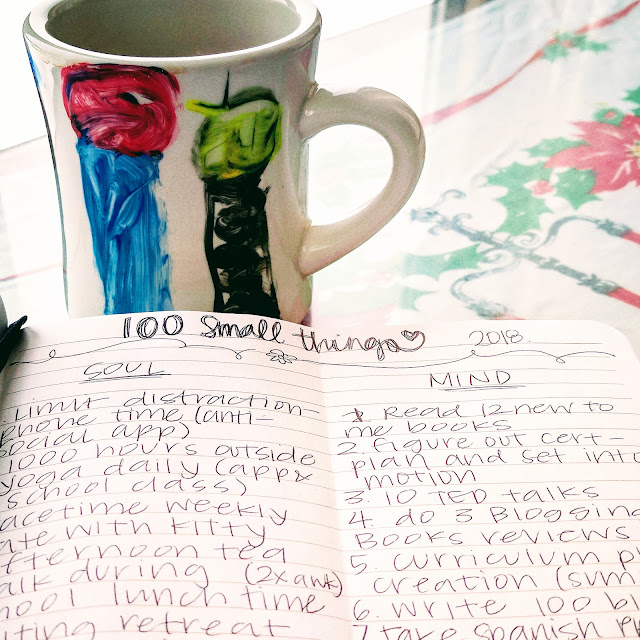 100 small things♡ 2018.
SOUL
Limit distraction-
phone time (anti-
social app)
1000 hours outside
yoga daily (app &
school class)
weekly
with kitty
tea
during (2x a wk)
lunch time
retreat
MIND
1. Read 12 new to
me books
2. Figure out cert-
plan and set into
motion
3. 10 TED talks
4. do 3 Blogging
Books reviews
5. curriculum
creation
6. write 100
7. take spanish